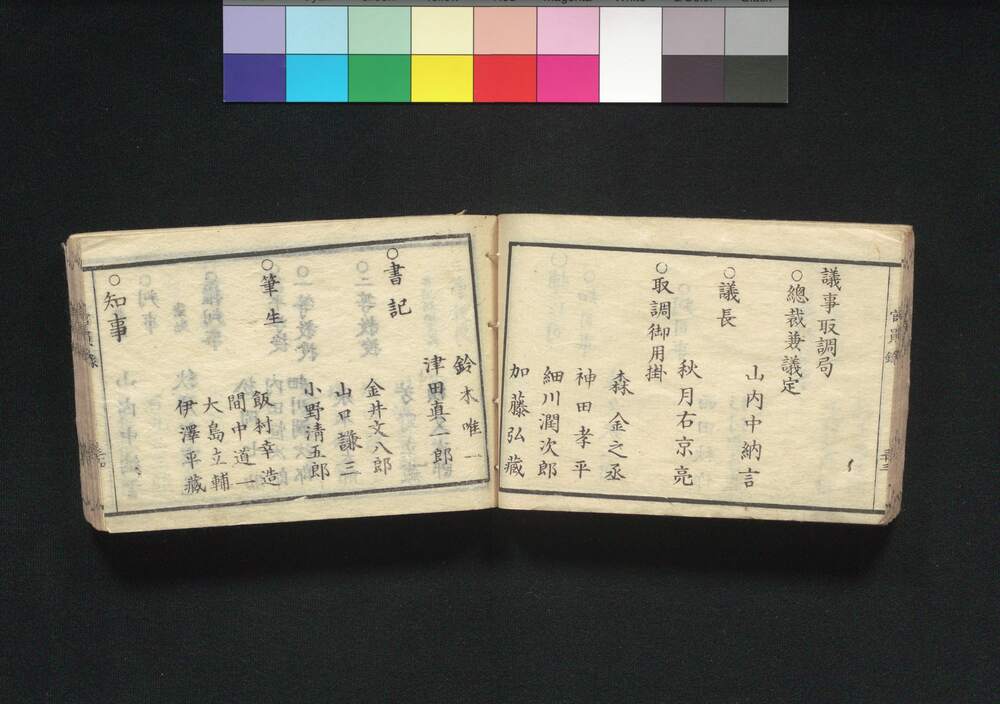 議事取調局
○總裁兼議定
山内中納言
○議長
秋月右京亮
○取調御用掛
森金之丞
神田孝平
細川潤次郎
加藤弘藏
鈴木唯一
津田真一郎
○書記
金井文八郎
山口謙三
小野清五郎
○筆生
飯村幸造
間中道一
大島立輔
伊澤平藏
○知事